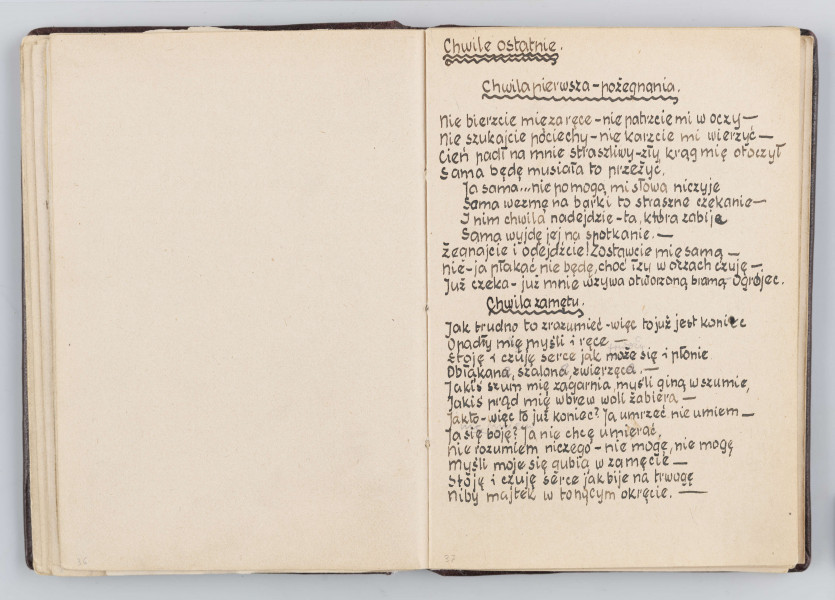 Chwile ostatnie.
Chwila pierwsza – pożegnania.
Nie bierzcie mię za ręce – nie patrzcie mi w oczy —
Nie szukajcie pociechy – nie karzcie mi wierzyć —
Cień padł na mnie straszliwy – zły krąg mię otoczył
Sama będę musiała to przeżyć.
Ja sama... nie pomogą mi słowa niczyje
Sama wezmę na barki to straszne czekanie —
I nim chwila nadejdzie – ta, która zabije
Sama wyjdę jej na spotkanie. —
Żegnajcie i odejdźcie! Zostawcie mię samą —
nie – ja płakać nie będę, choć łzy w oczach czuję —
Już czeka – już mnie wzywa otworzoną bramą Ogrójec.
Chwila zamętu.
Jak trudno to zrozumieć – więc to już jest koniec
Opadły mię myśli i ręce —
Stoję i czuję serce jak może się i płonie
Obłąkane, szalone, zwierzęce. —
Jakiś szum mię zagarnia, myśli giną w szumie,
Jakiś prąd mię wbrew woli zabiera —
Jakto – więc to już koniec? Ja umrzeć nie umiem —
Ja się boję? Ja nie chcę umierać.
Nie rozumiem niczego – nie mogę, nie mogę
Myśli moje się gubią w zamęcie —
Stoję i czuję serce jak bije na trwogę
Niby majtek w tonącym okręcie. —
36
37